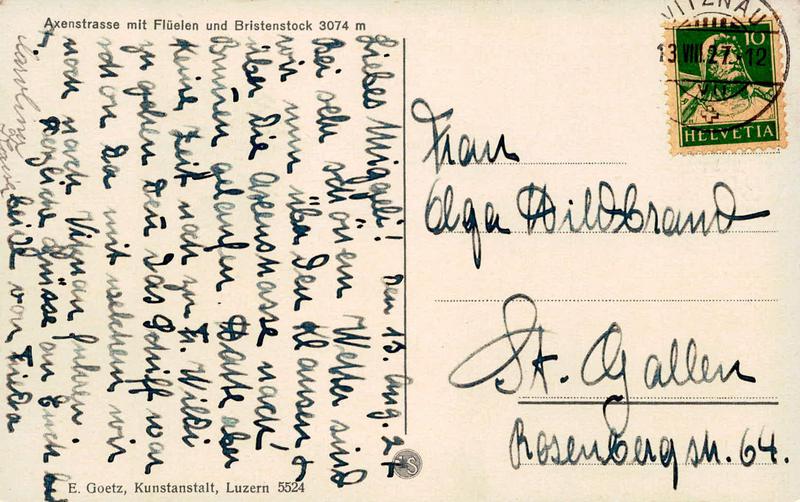 Axenstrasse mit Flüelen und Bristenstock 3074 m
Liebes Miggeli! Den 13. Aug. 27
Bei sehr schönem Wetter sind
wir nun über den Klausen &
über die Axenstrasse nach
Brunnen gelaufen. Hatte aber
keine Zeit noch zu Fr. Wilki
zu gehen denn das Schiff war
schon da mit welchem wir
noch nach Vitznau fuhren.
Herzliche Grüsse an Euch
beide von Frieda
E. Goetz, Kunstanstalt, Luzern 5524
S
VITZNAU
13.VIII.27. 12
10
HELVETIA
Frau
Olga Hildbrand
St. Gallen
Rosenbergstr. 64.